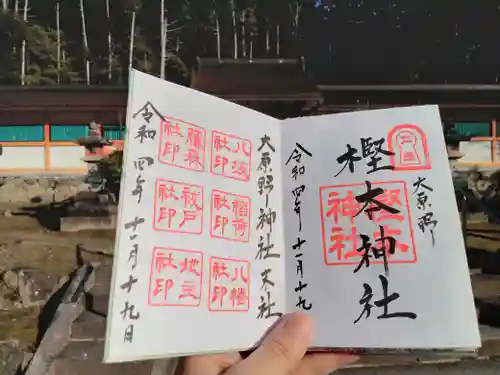 樫本神社
大原野
樫本
神社
令和四年十一月十九日
大原野神社 末社
八坂
社印
稲荷
社印
八幡
社印
社印
祓戸
社印
地主
社印
令和四年十一月十九日